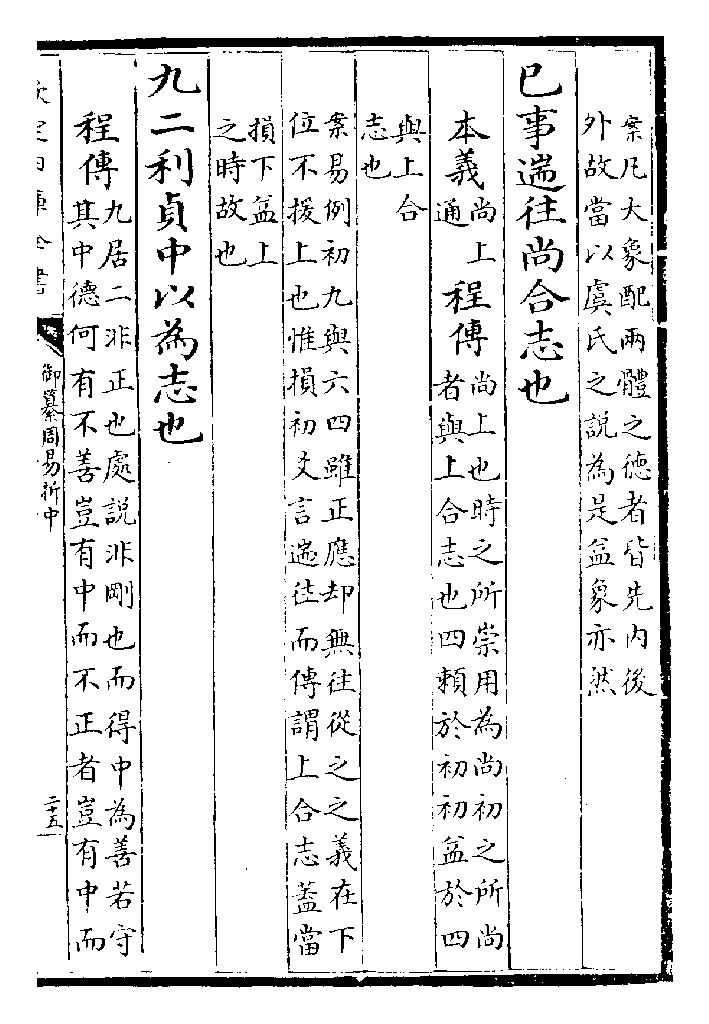 案凡大象配兩體之德者皆先內後
外故當以虞氏之說為是益象亦然
已事遄往尚合志也
本義尚上通程傳尚上也時之所崇用為尚初之所尚
者與上合志也四賴於初初益於四
與上合
志也
案易例初九與六四雖正應却無往從之之義在下
位不援上也惟損初爻言遄往而傳謂上合志蓋當
損下益上
之時故也
九二利貞中以為志也
程傳九居二非正也處說非剛也而得中為善若守
其中德何有不善豈有中而不正者豈有中而
欽定四庫全書
御纂周易折中
二十五